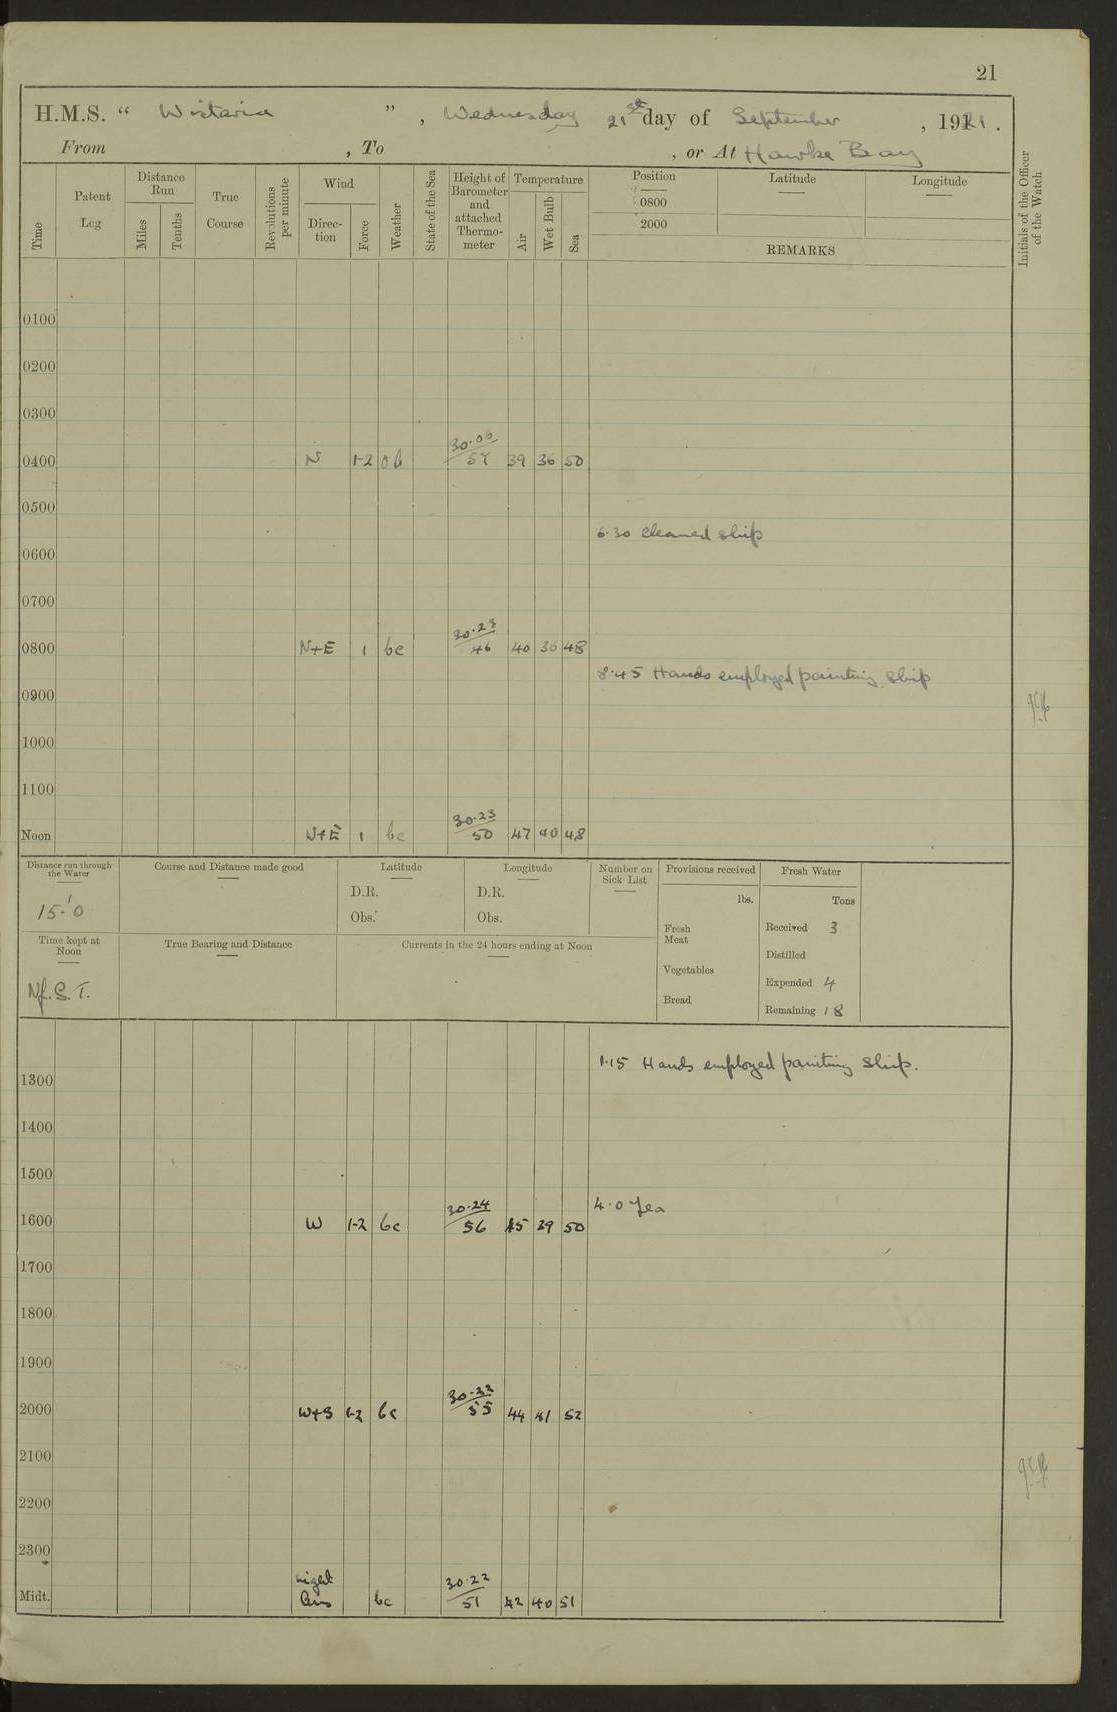 21
H.M.S. “ Wistaria ” , Wednesday 21st day of September , 1921 .
From , To , or At Hawke Bay
Time
Patent Log
Distance Run
Miles
Tenths
True Course
Revolutions per minute
Wind
Direc- tion
Force
Weather
State of the Sea
Height of Barometer and attached Thermo- meter
Temperature
Air
Wet Bulb
Sea
Position
0800
2000
Latitude
Longitude
REMARKS
Initials of the Officer of the Watch
0100
0200
0300
0400 N 1-2 30.06/57 39 36 50
0500
6.30 Cleaned ship
0600
0700
0800 N+E 1 bc 30.23/46 40 36 48
8.45 Hands employed painting ship
0900
1000
1100
Noon N+E 1 bc 30.23/50 47 40 48
Distance run through the Water
15.0
Course and Distance made good
Latitude
D.R.
Obs.
Longitude
D.R.
Obs.
Number on Sick List
Provisions received
lbs.
Fresh Meat
Vegetables
Bread
Fresh Water
Tons
Received 3
Distilled
Expended 4
Remaining 18
Time kept at Noon
Nf. S. T.
True Bearing and Distance
Currents in the 24 hours ending at Noon
1.15 Hands employed painting ship.
1300
1400
1500
4.0 Tea
1600 W 1-2 bc 30.24/56 45 39 50
1700
1800
1900
2000 W+S 1-2 bc 30.23/55 44 41 52
2100
2200
2300
Midt. Light airs bc 30.22/51 42 40 51